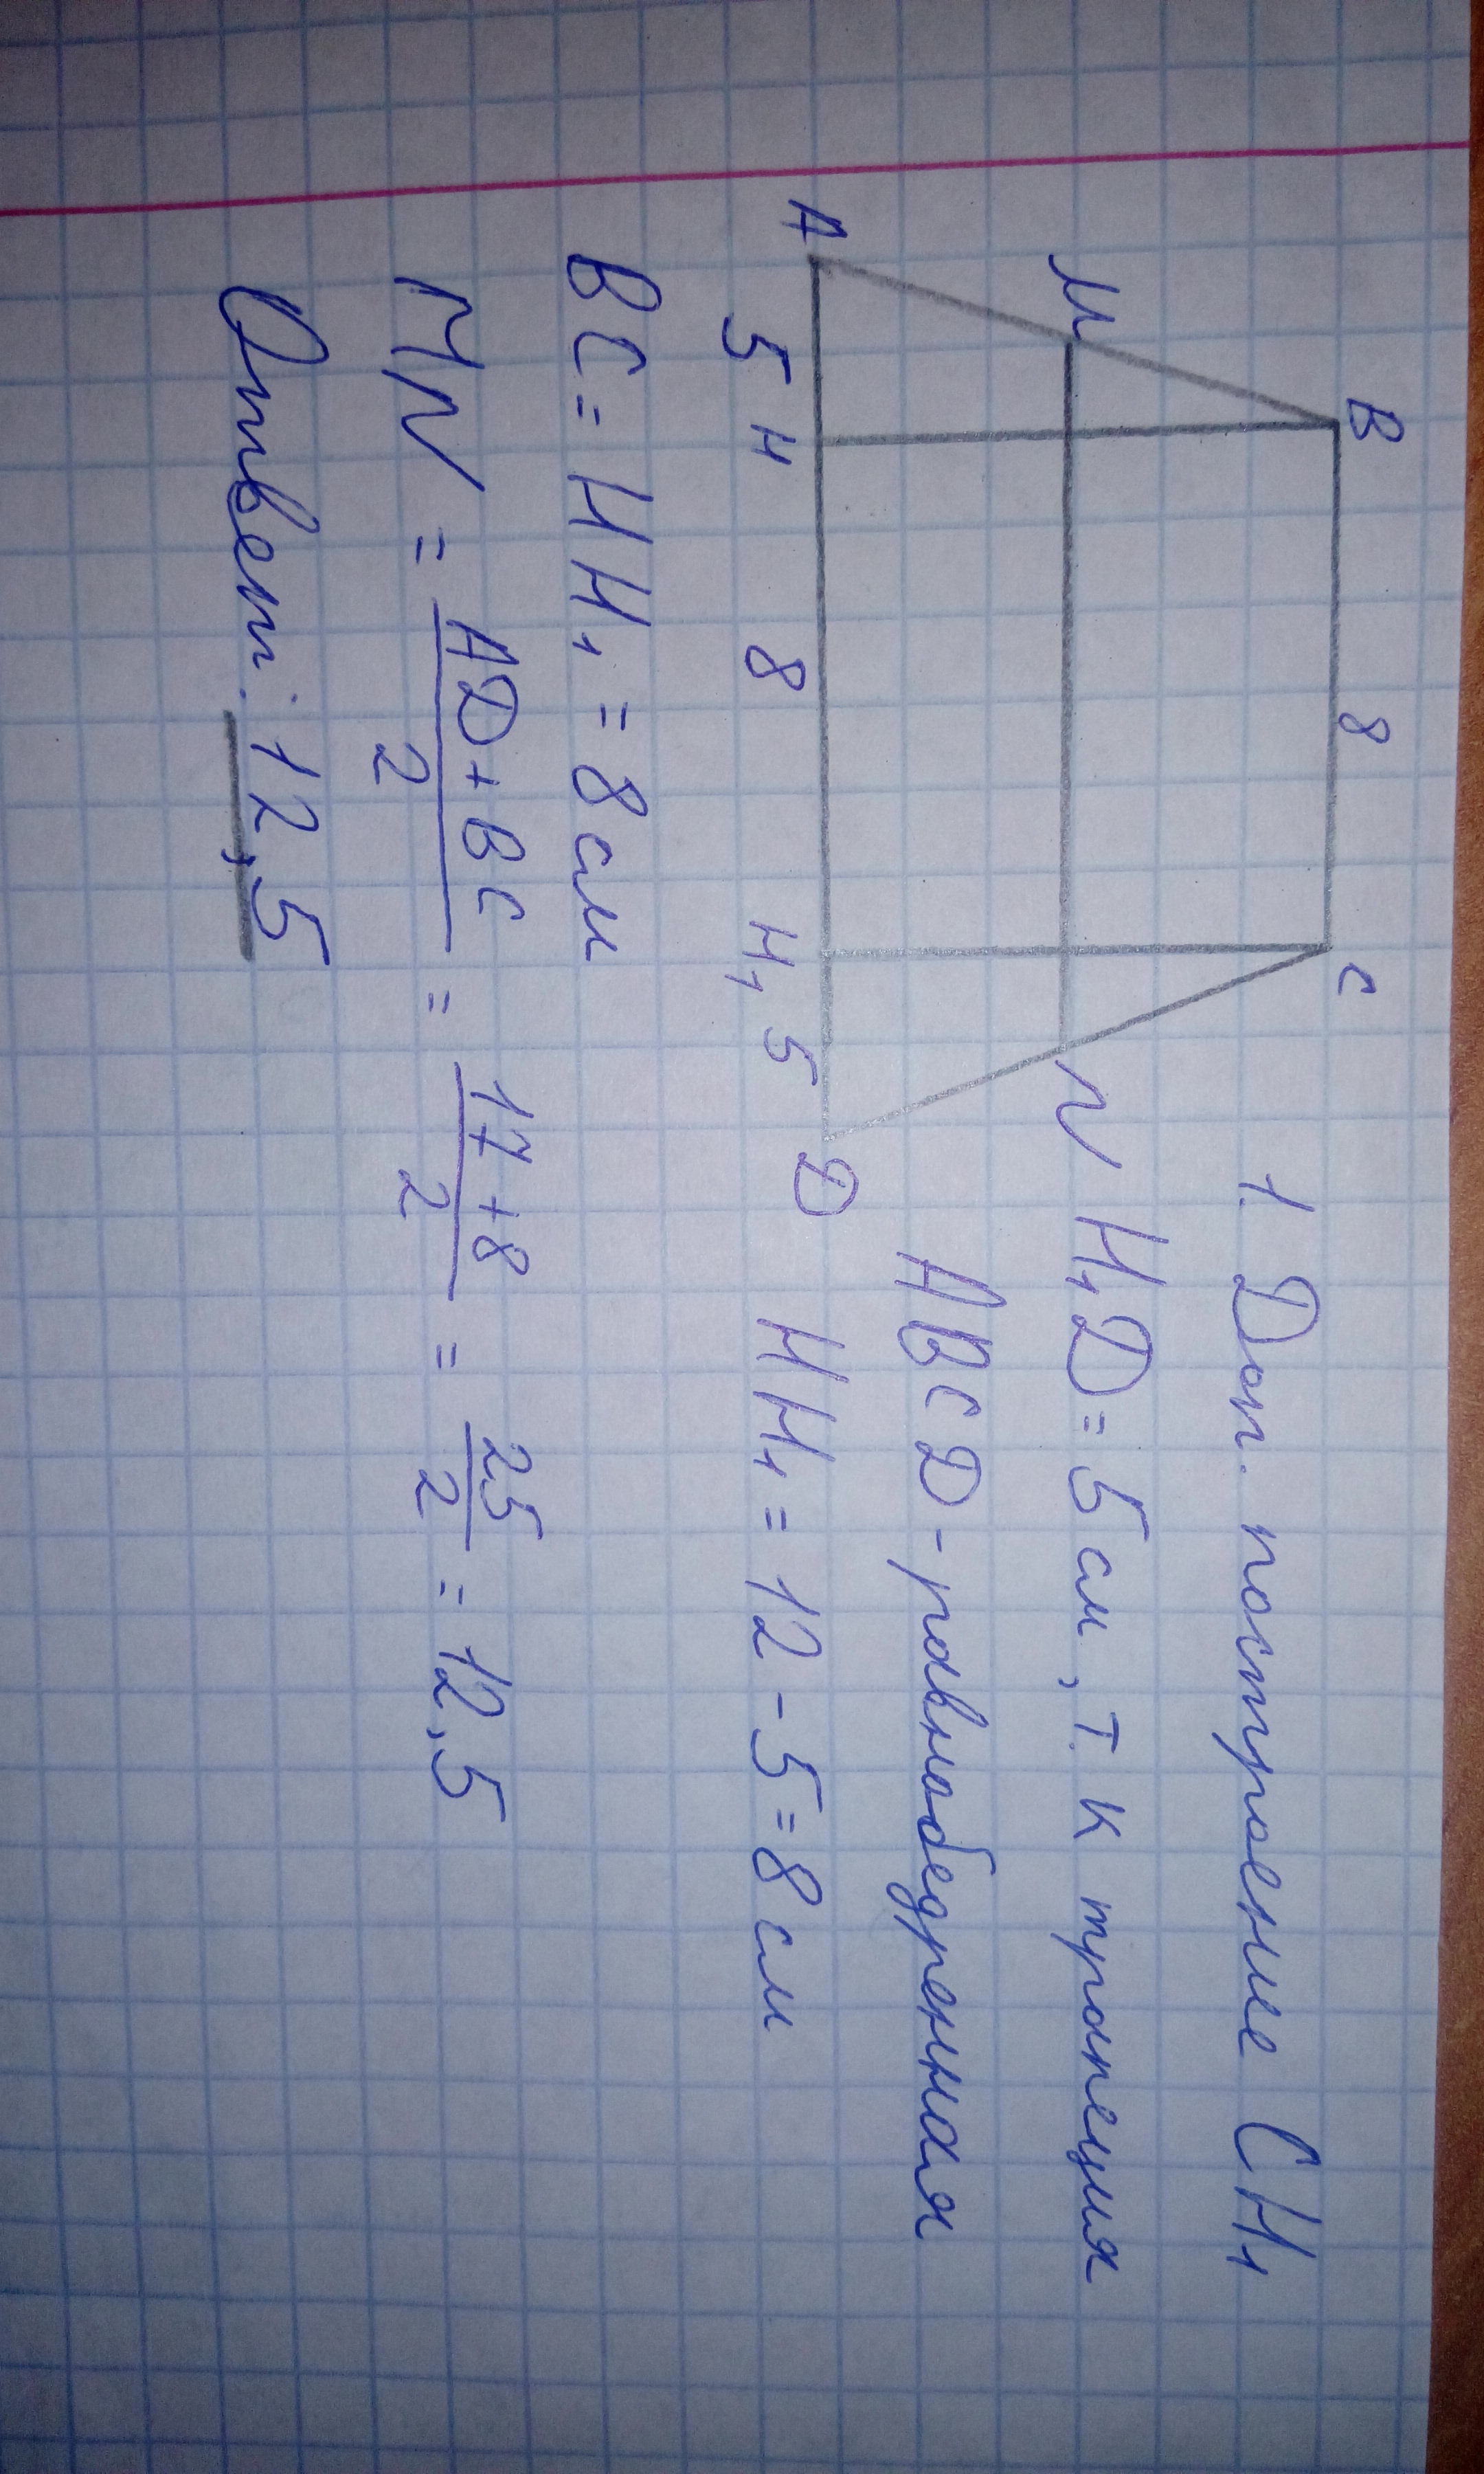 B 8 C
1. Доп. построение CH₁
M N H₁D = 5 см, т. к трапеция
ABCD - равнобедренная
A 5 H 8 H₁ 5 D
HH₁ = 12 - 5 = 8 см
BC = HH₁ = 8 см
MN = AD + BC / 2 = 17 + 8 / 2 = 25 / 2 = 12,5
Ответ: 12,5